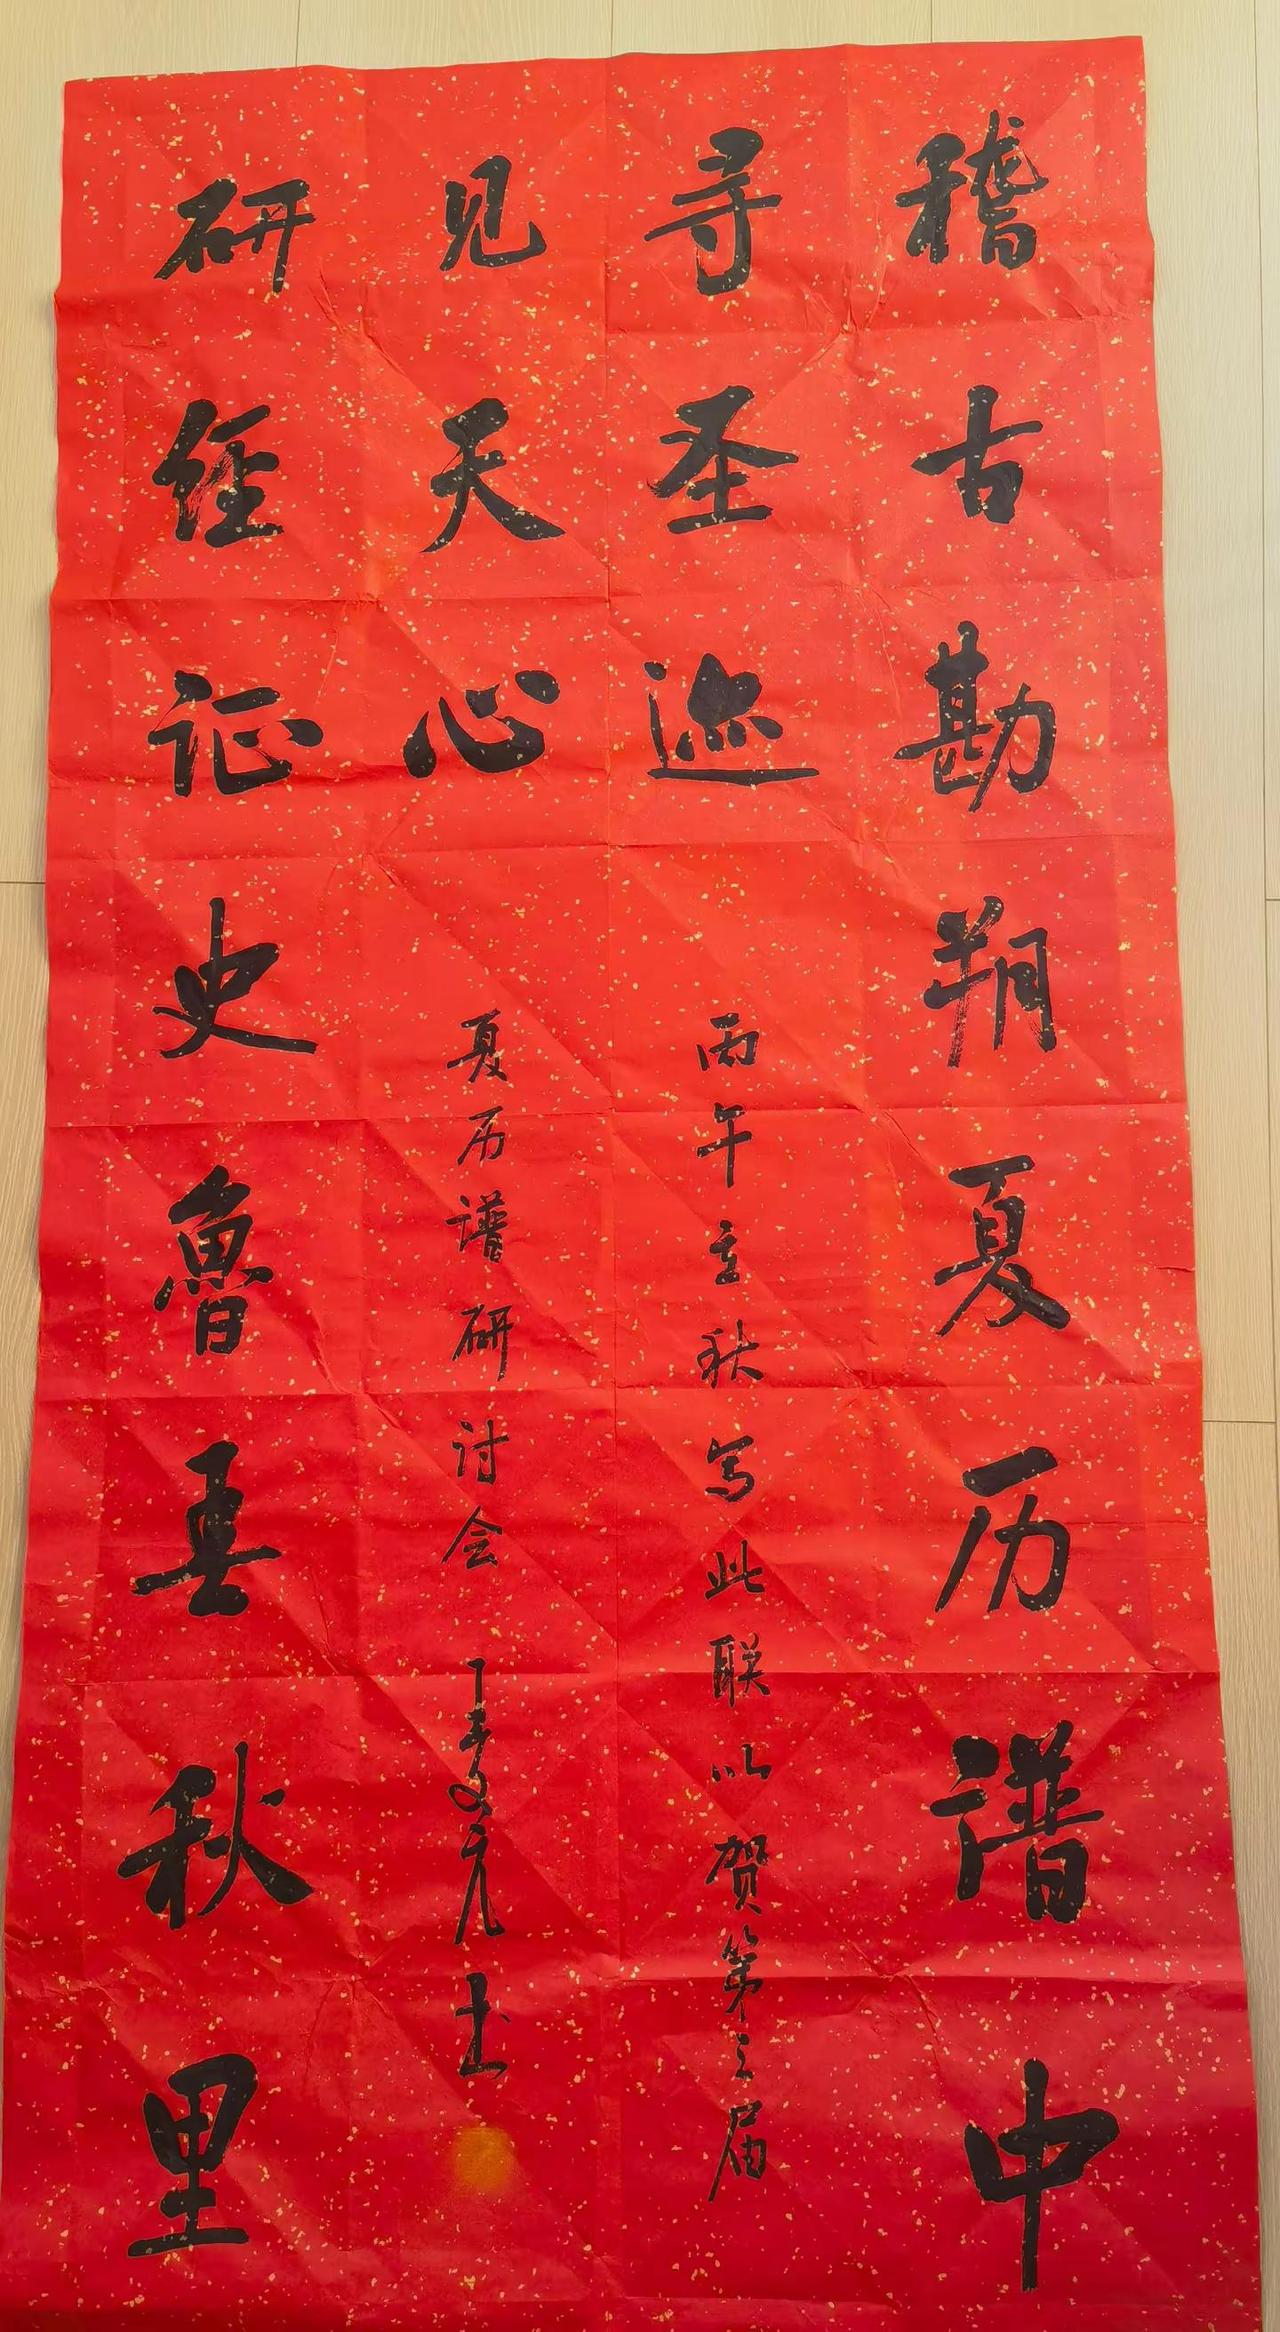 稽古勘朔夏历谱中
寻圣迹
研经证史鲁春秋里
见天心
丙午立秋写此联以贺第三届
夏历谱研讨会 书